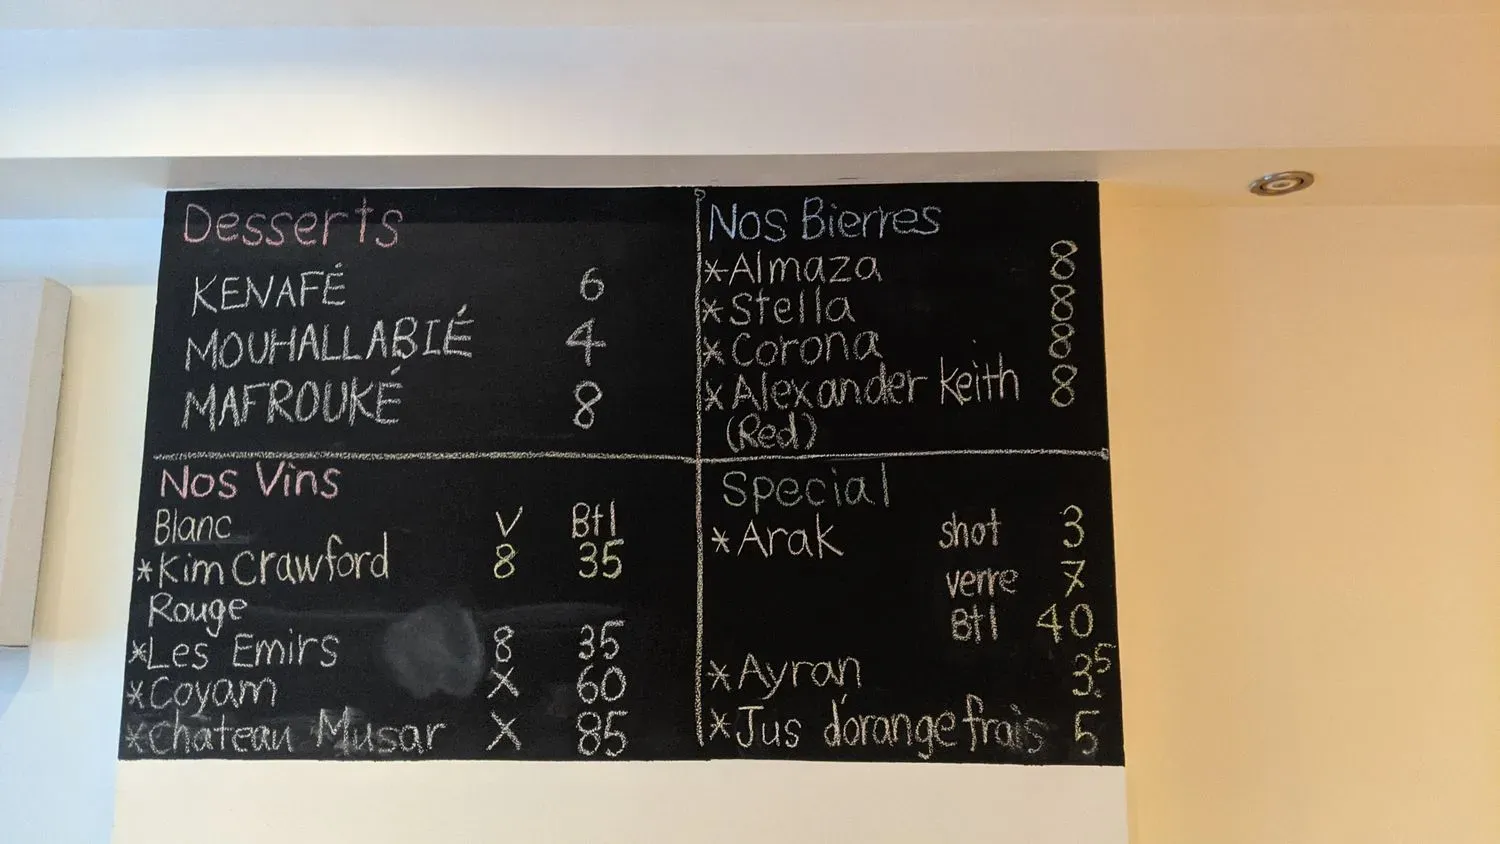 Desserts
KENAFÉ 6
MOUHALLABIÉ 4
MAFROUKÉ 8
Nos Bierres
*Almaza 8
*Stella 8
*Corona 8
*Alexander Keith 8
(Red)
Nos Vins
Blanc V Btl
*Kim Crawford 8 35
Rouge
*Les Emirs 8 35
*Coyam X 60
*Chateau Musar X 85
Special
*Arak shot 3
verre 7
Btl 40
*Ayran 3.5
*Jus d'orange frais 5